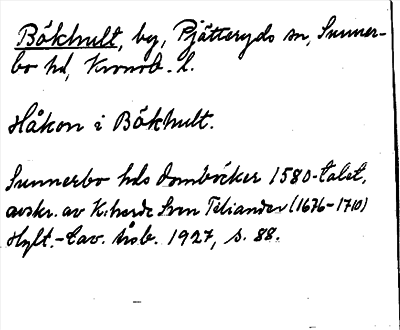 Bökhult, by, Pjätteryds sn, Sunner-
bo hd, Kronob. l.
Håkon i Bökhult.
Sunnerbo hds domböcker 1580-talet,
avskr. av K:herde Sven Teliander (1676-1710)
Hylt.-Cav. årsb. 1927, s. 88.